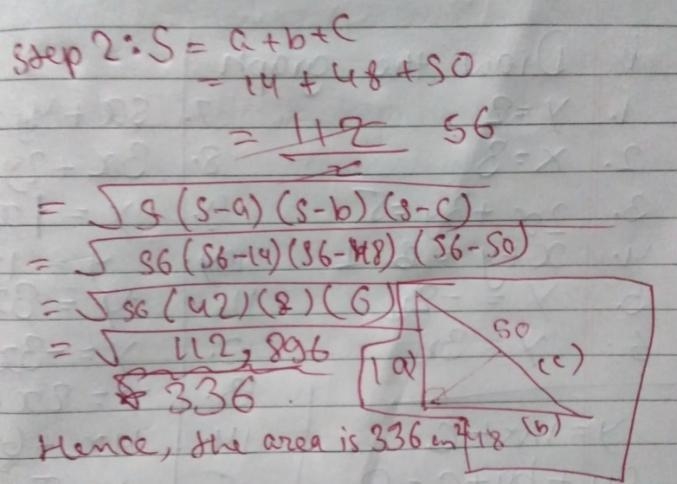 Step 2: S = a+b+c
= 14 + 48 + 50
= 112/2 56
= √s(s-a)(s-b)(s-c)
= √56(56-14)(56-48)(56-50)
= √56(42)(8)(6)
= √112,896
336
50
(a)
(c)
(b)
48
Hence, the area is 336 cm²